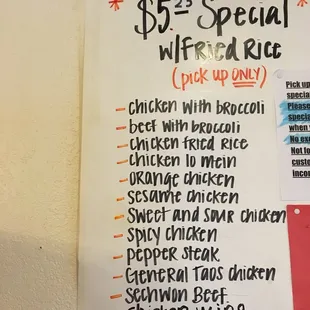 * $5.25 Special *
w/Fried Rice
(pick up ONLY)
- chicken with broccoli
- beef with broccoli
- chicken fried rice
- chicken lo mein
- orange chicken
- sesame chicken
- sweet and sour chicken
- spicy chicken
- pepper steak
- General Taos chicken
- Sechwon Beef
chicken wing
Pick up
special
Please
special
when
No ex
Not
custo
incon